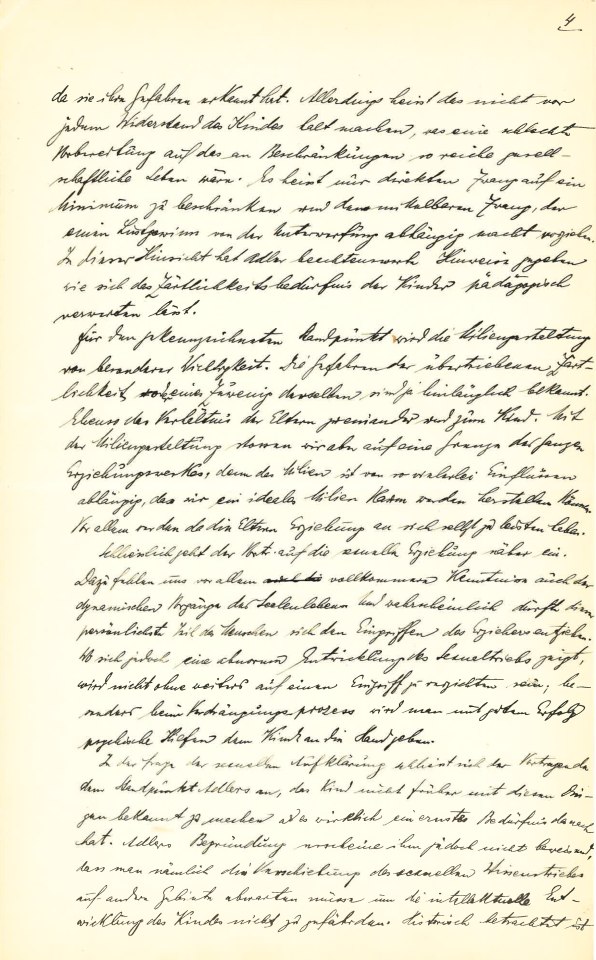 4
da sie ihre Gefahren erkannt hat. Allerdings heisst das nicht vor
jedem Widerstand des Kindes halt machen, was eine schlechte
Vorbereitung auf das an Beschränkungen so reiche gesell-
schaftliche Leben wäre. Es heisst nur direkten Zwang auf ein
Minimum zu beschränken und den unmittelbaren Zwang, der
einen Lustgewinn von der Unterwerfung abhängig macht vorziehen.
In dieser Hinsicht hat Adler beachtenswerte Hinweise gegeben
wie sich das Zärtlichkeitsbedürfnis der Kinder pädagogisch
verwerten lässt.
Für den gekennzeichneten Standpunkt wird die Milieugestaltung
von besonderer Wichtigkeit. Die Gefahren der übertriebenen Zärt-
lichkeit, eines Zuwenig derselben, sind ja hinlänglich bekannt.
Ebenso das Verhältnis der Eltern zueinander und zum Kind. Mit
der Milieugestaltung stossen wir aber auf eine Grenze des ganzen
Erziehungswerkes, denn das Milieu ist von so vielerlei Einflüssen
abhängig, dass wir ein ideales Milieu kaum werden herstellen können.
Vor allem werden da die Eltern Erziehung an sich selbst zu leisten haben.
Schliesslich geht der Vortr. auf die sexuelle Erziehung näher ein.
Dazu fehlen uns vor allem vollkommene Kenntnisse auch der
dynamischen Vorgänge des Seelenlebens und wahrscheinlich dürfte dieser
persönlichste Teil des Menschen sich den Eingriffen des Erziehers entziehen.
Wo sich jedoch eine abnorme Entwicklung des Sexualtriebs zeigt,
wird nicht ohne weiters auf einen Eingriff zu verzichten sein; be-
sonders beim Verdrängungsprozess wird man mit gutem Erfolg
psychische Hilfen dem Kind an die Hand geben.
In der Frage der sexuellen Aufklärung schliesst sich der Vortragende
dem Standpunkt Adlers an, das Kind nicht früher mit diesen Din-
gen bekannt zu machen als es wirklich ein ernstes Bedürfnis danach
hat. Adlers Begründung erscheine ihm jedoch nicht beweisend,
dass man nämlich die Verschiebung des sexuellen Wissenstriebes
auf andere Gebiete abwarten müsse um die intellektuelle Ent-
wicklung des Kindes nicht zu gefährden. Historisch betrachtet ist